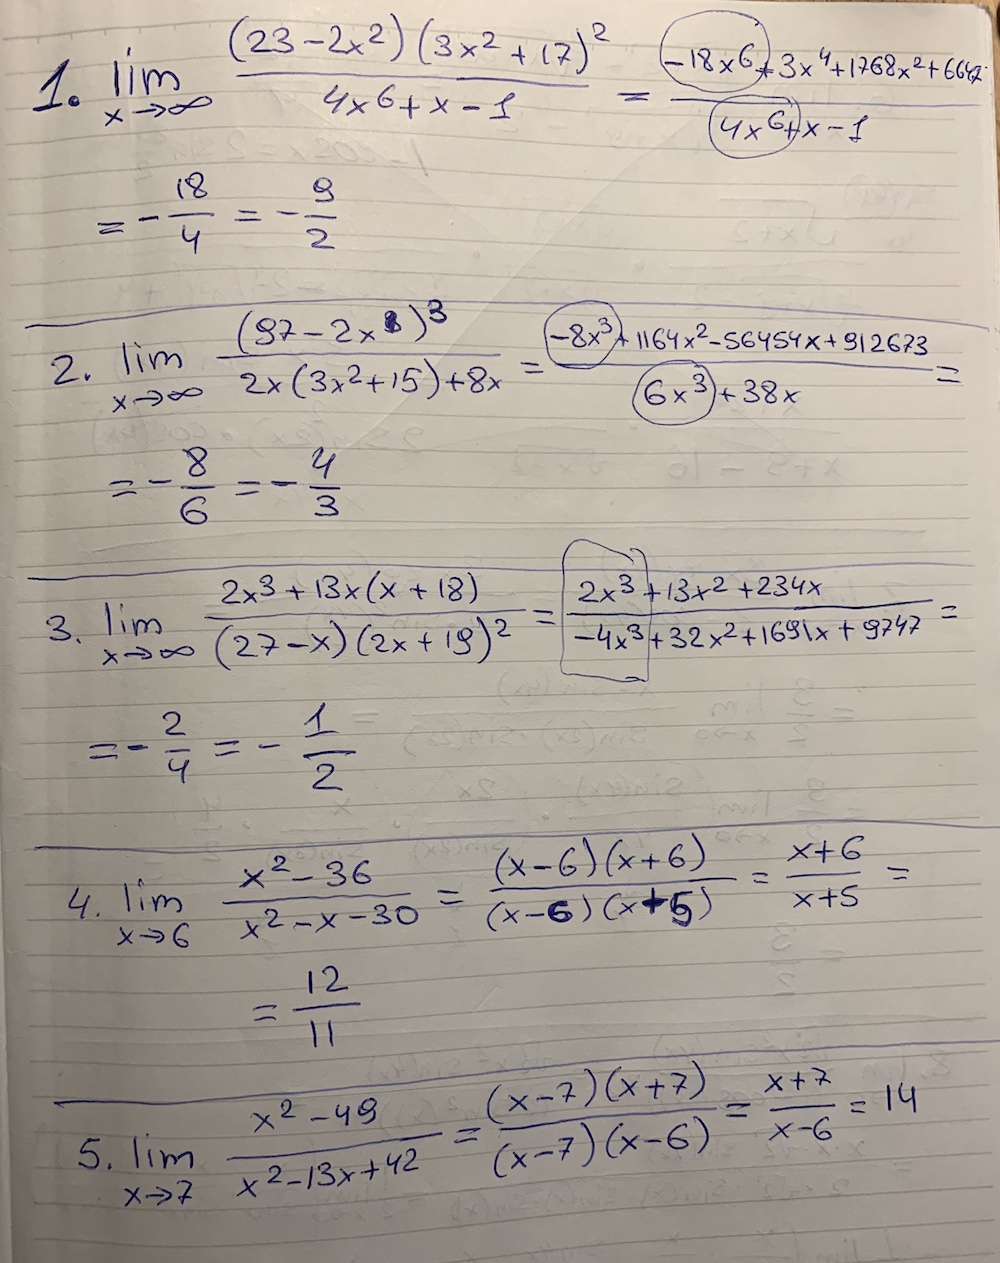 1. lim x→∞ (23 − 2x²)(3x² + 17)² / (4x⁶ + x − 1) = (−18x⁶ + 3x⁴ + 1768x² + 6647) / (4x⁶ + x − 1)
= − 18/4 = − 9/2
2. lim x→∞ (97 − 2x)³ / (2x(3x² + 15) + 8x) = (−8x³ + 1164x² − 56454x + 912673) / (6x³ + 38x) =
= − 8/6 = − 4/3
3. lim x→∞ (2x³ + 13x(x + 18)) / ((27 − x)(2x + 19)²) = (2x³ + 13x² + 234x) / (−4x³ + 32x² + 1691x + 9747) =
= − 2/4 = − 1/2
4. lim x→6 (x² − 36) / (x² − x − 30) = (x − 6)(x + 6) / (x − 6)(x + 5) = (x + 6) / (x + 5) =
= 12/11
5. lim x→7 (x² − 49) / (x² − 13x + 42) = (x − 7)(x + 7) / (x − 7)(x − 6) = (x + 7) / (x − 6) = 14